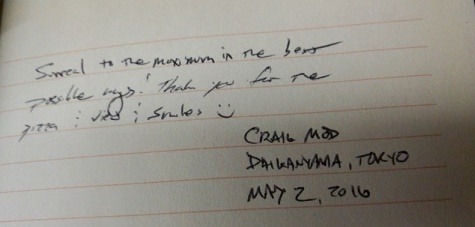 Surreal to the maximum in the best
possible ways! Thank you for the
pizza & & smiles :)
CRAIG MOD
DAIKANYAMA, TOKYO
MAY 2, 2016